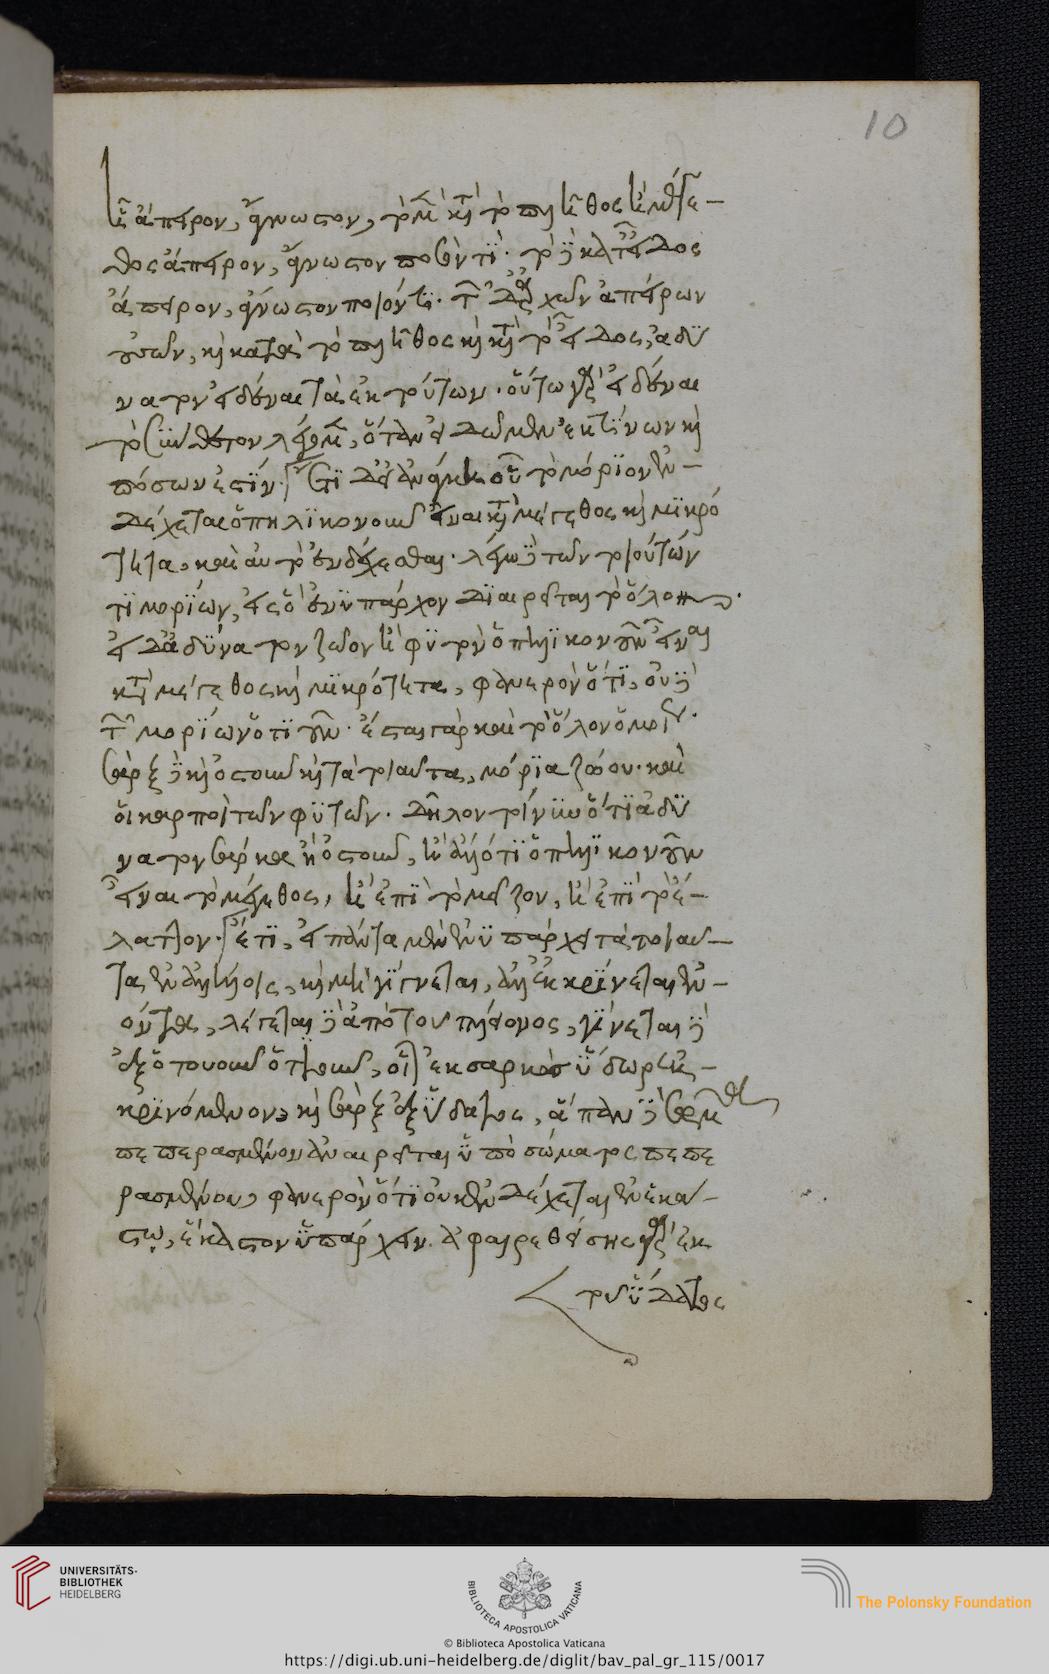 10
ἢ ἄπειρον, ἄγνωστον, τὸ μὲν κατὰ τὸ πλῆθος ἢ μέγε-
θος ἄπειρον, ἄγνωστον ποσόν τι· τὸ δὲ κατ' εἶδος
ἄπειρον, ἄγνωστον ποιόν τι. τῶν δ' ἀρχῶν ἀπείρων
οὐσῶν, καὶ κατὰ τὸ πλῆθος καὶ κατὰ τὸ εἶδος, ἀδύ
νατον εἰδέναι τὰ ἐκ τούτων. οὕτω γὰρ εἰδέναι
τὸ σύνθετον λέγομεν, ὅταν εἰδῶμεν ἐκ τίνων καὶ
πόσων ἐστίν. ἔτι δ' εἰ ἀνάγκη οὗ τὸ μόριον ἐν-
δέχεται ὁπηλικονοῦν εἶναι κατὰ μέγεθος καὶ μικρό
τητα, καὶ αὐτὸ ἐνδέχεσθαι. λέγω δὲ τῶν τοιούτων
τι μορίων, εἰς ὃ ἐνυπάρχον διαιρεῖται τὸ ὅλον.
εἰ δὲ ἀδύνατον ζῷον ἢ φυτὸν ὁπηλικονοῦν εἶναι
κατὰ μέγεθος καὶ μικρότητα, φανερὸν ὅτι, οὐδὲ
τῶν μορίων ὁτιοῦν. ἔσται γὰρ καὶ τὸ ὅλον ὁμοίως.
σὰρξ δὲ καὶ ὀστοῦν καὶ τὰ τοιαῦτα, μόρια ζώου. καὶ
οἱ καρποὶ τῶν φυτῶν. δῆλον τοίνυν ὅτι ἀδύ
νατον σάρκα ἢ ὀστοῦν, ἢ ἄλλό τι ὁπηλικονοῦν
εἶναι τὸ μέγεθος, ἢ ἐπὶ τὸ μεῖζον, ἢ ἐπὶ τὸ ἔ-
λαττον. ἔτι, εἰ πάντα μὲν ἐνυπάρχει τὰ τοιαῦ-
τα ἐν ἀλλήλοις, καὶ μὴ γίγνεται, ἀλλ' ἐκκρίνεται ἐν-
όντα, λέγεται δὲ ἀπὸ τοῦ πλείονος, γίνεται δὲ
ἐξ ὁτουοῦν ὁτιοῦν, οἷον ἐκ σαρκὸς ὕδωρ ἐκ-
κρινόμενον, καὶ σὰρξ ἐξ ὕδατος, ἅπαν δὲ σῶμα
πεπερασμένον ἀναιρεῖται ὑπὸ σώματος πεπε
ρασμένου, φανερὸν ὅτι οὐκ ἐνδέχεται ἐν ἑκά-
στῳ, ἕκαστον ὑπάρχειν. ἀφαιρεθείσης γὰρ ἐκ
τοῦ ὕδατος
UNIVERSITÄTS-
BIBLIOTHEK
HEIDELBERG
BIBLIOTECA APOSTOLICA VATICANA
The Polonsky Foundation
© Biblioteca Apostolica Vaticana
https://digi.ub.uni-heidelberg.de/diglit/bav_pal_gr_115/0017